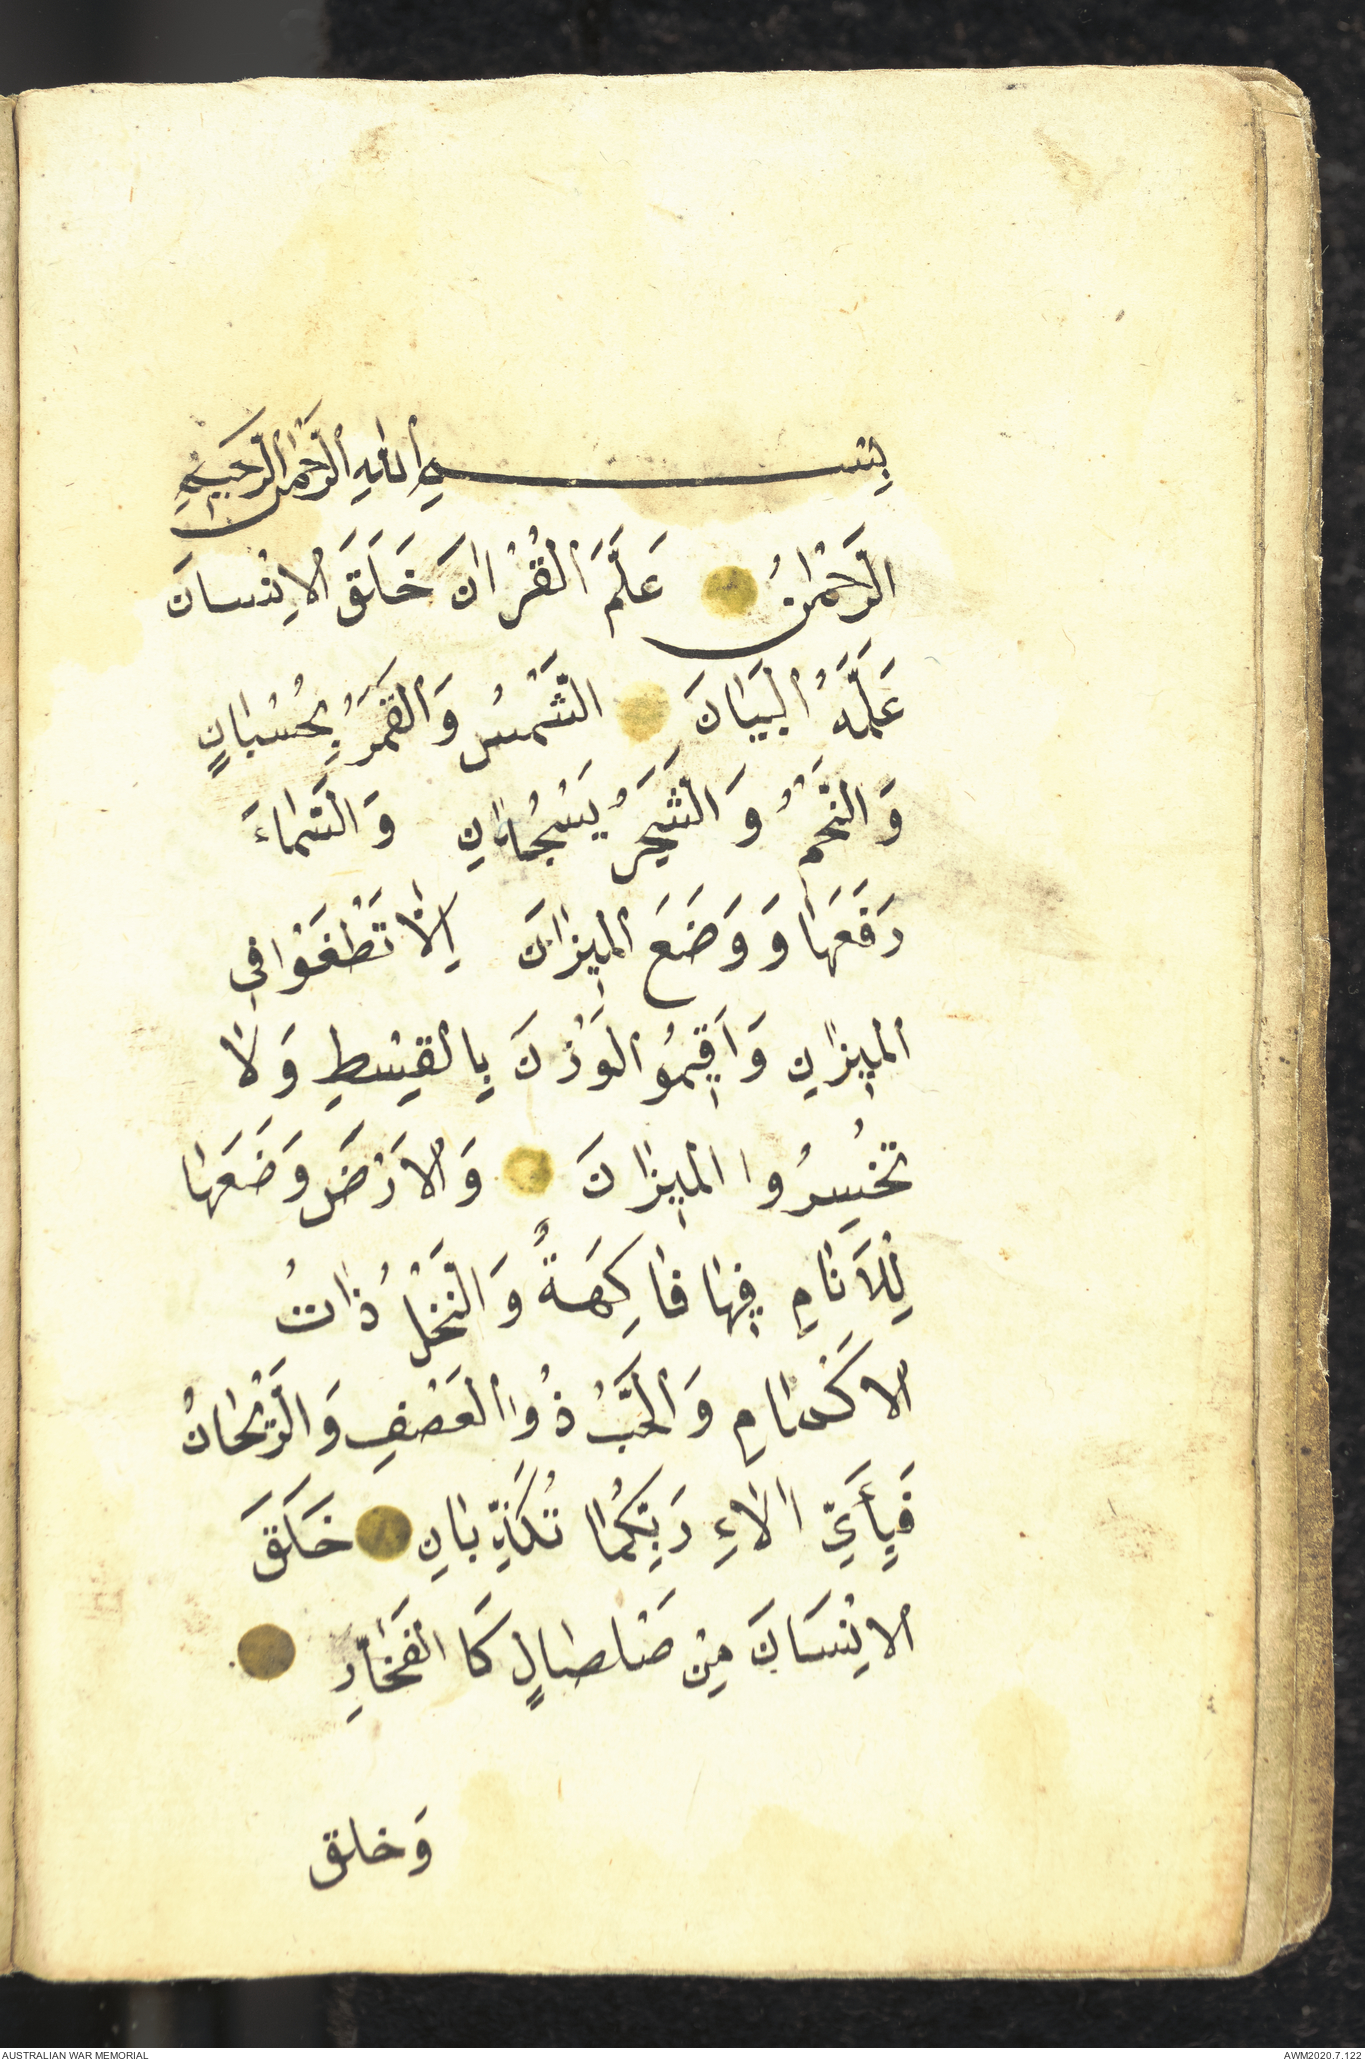 بِسْــــــمِ اللهِ الرَّحْمٰنِ الرَّحَيمِ
الرَّحْمٰنُ عَلَّمَ الْقُرْاٰنَ خَلَقَ الاِنْسانَ
عَلَّمَهُ الْبَيَانَ الشَّمْسُ وَالْقَمَرُ بِحُسْبٰانٍ
وَالنَّجْمُ وَالشَّجَرُ يَسْجُدٰانِ وَالسَّمٰاءَ
رَفَعَهٰا وَوَضَعَ الْمٖيزٰانَ اِلاّٰ تَطْغَوْا فٖى
الْمٖيزٰانِ وَاَقٖيمُو الْوَزْنَ بِالْقِسْطِ وَلاٰ
تُخْسِرُوا الْمٖيزٰانَ وَالاَرْضَ وَضَعَهٰا
لِلْاَنٰامِ فٖيهٰا فٰاكِهَةٌ وَالنَّخْلُ ذٰاتُ
الاَكْمٰامِ وَالْحَبُّ ذُوا الْعَصْفِ وَالرَّيْحٰانُ
فَبِأَيِّ اٰلاٰءِ رَبِّكُمٰا تُكَذِّبٰانِ خَلَقَ
الاِنْسَانَ مِنْ صَلصٰالٍ كَا الْفَخّٰارِ
وَخلق
AUSTRALIAN WAR MEMORIAL AWM2020.7.122